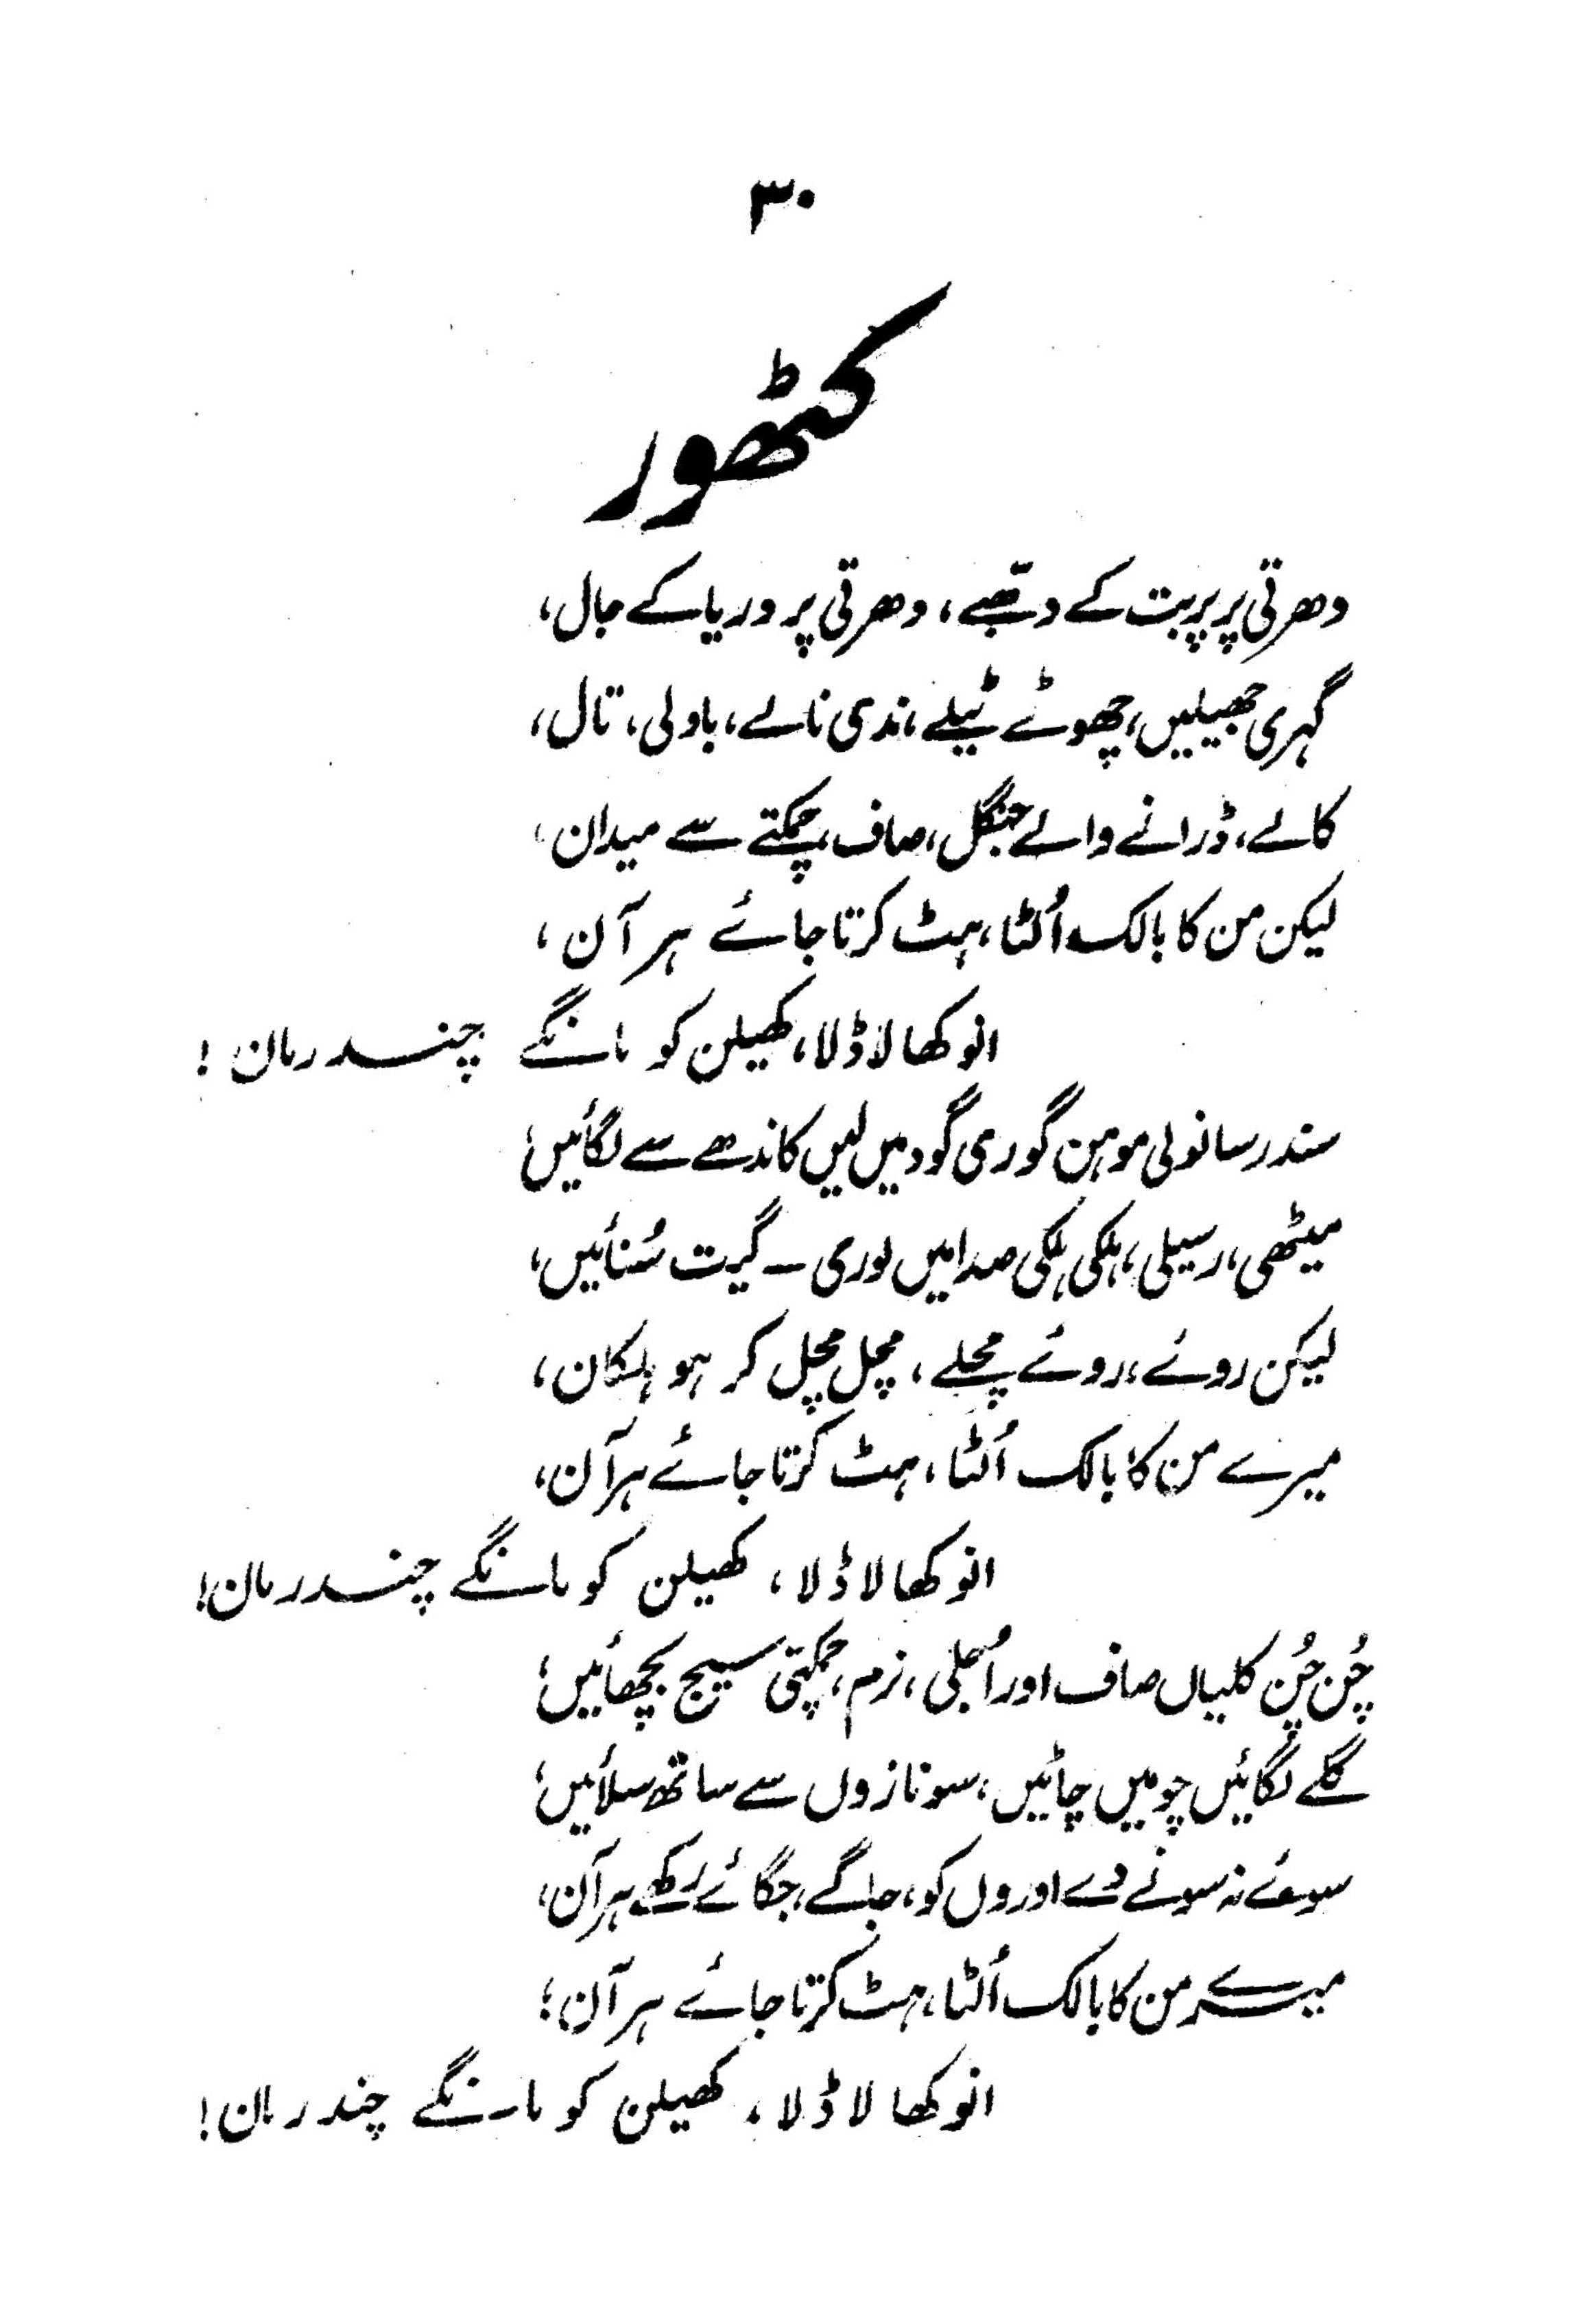 ۳۰
کٹھور
دھرتی پر پربت کے دھبّے، دھرتی پر دریا کے جال،
گہری جھیلیں، چھوٹے ٹیلے، ندی نالے، باولی، تال،
کالے، ڈرانے والے جنگل، صاف چمکتے سے میدان،
لیکن من کا بالک اُلٹا، ہٹ کرتا جائے ہر آن،
انوکھا لاڈلا، کھیلن کو مانگے چندرمان!
سندر سانولی موہن گوری گود میں لیں کاندھے سے لگائیں؛
میٹھی، رسیلی، ہلکی ہلکی صدا میں لوری ـ گیت سُنائیں،
لیکن روئے، روئے مچلے، مچل مچل کر ہو ہلکان،
میرے من کا بالک اُلٹا، ہٹ کرتا جائے ہر آن،
انوکھا لاڈلا، کھیلن کو مانگے چندرمان!
چُن چُن کلیاں صاف اور اُجلی، نرم، چمکتی سیج بچھائیں؛
گلے لگائیں چومیں چاٹیں، سو نازوں سے ساتھ سلائیں؛
سوئے نہ سونے دے اوروں کو، جاگے، جگائے رکھے ہر آن،
میرے من کا بالک اُلٹا، ہٹ کرتا جائے ہر آن؛
انوکھا لاڈلا، کھیلن کو مانگے چندرمان!